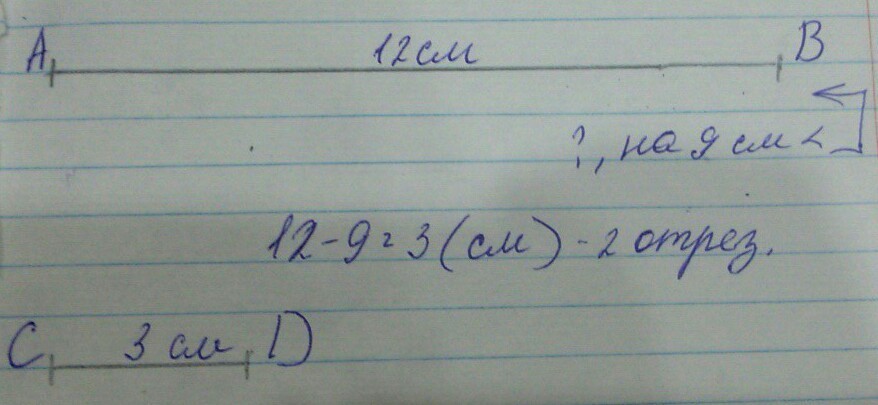 A 12 см B
?, на 9 см <
12-9=3(см) - 2 отрез.
C 3 см D